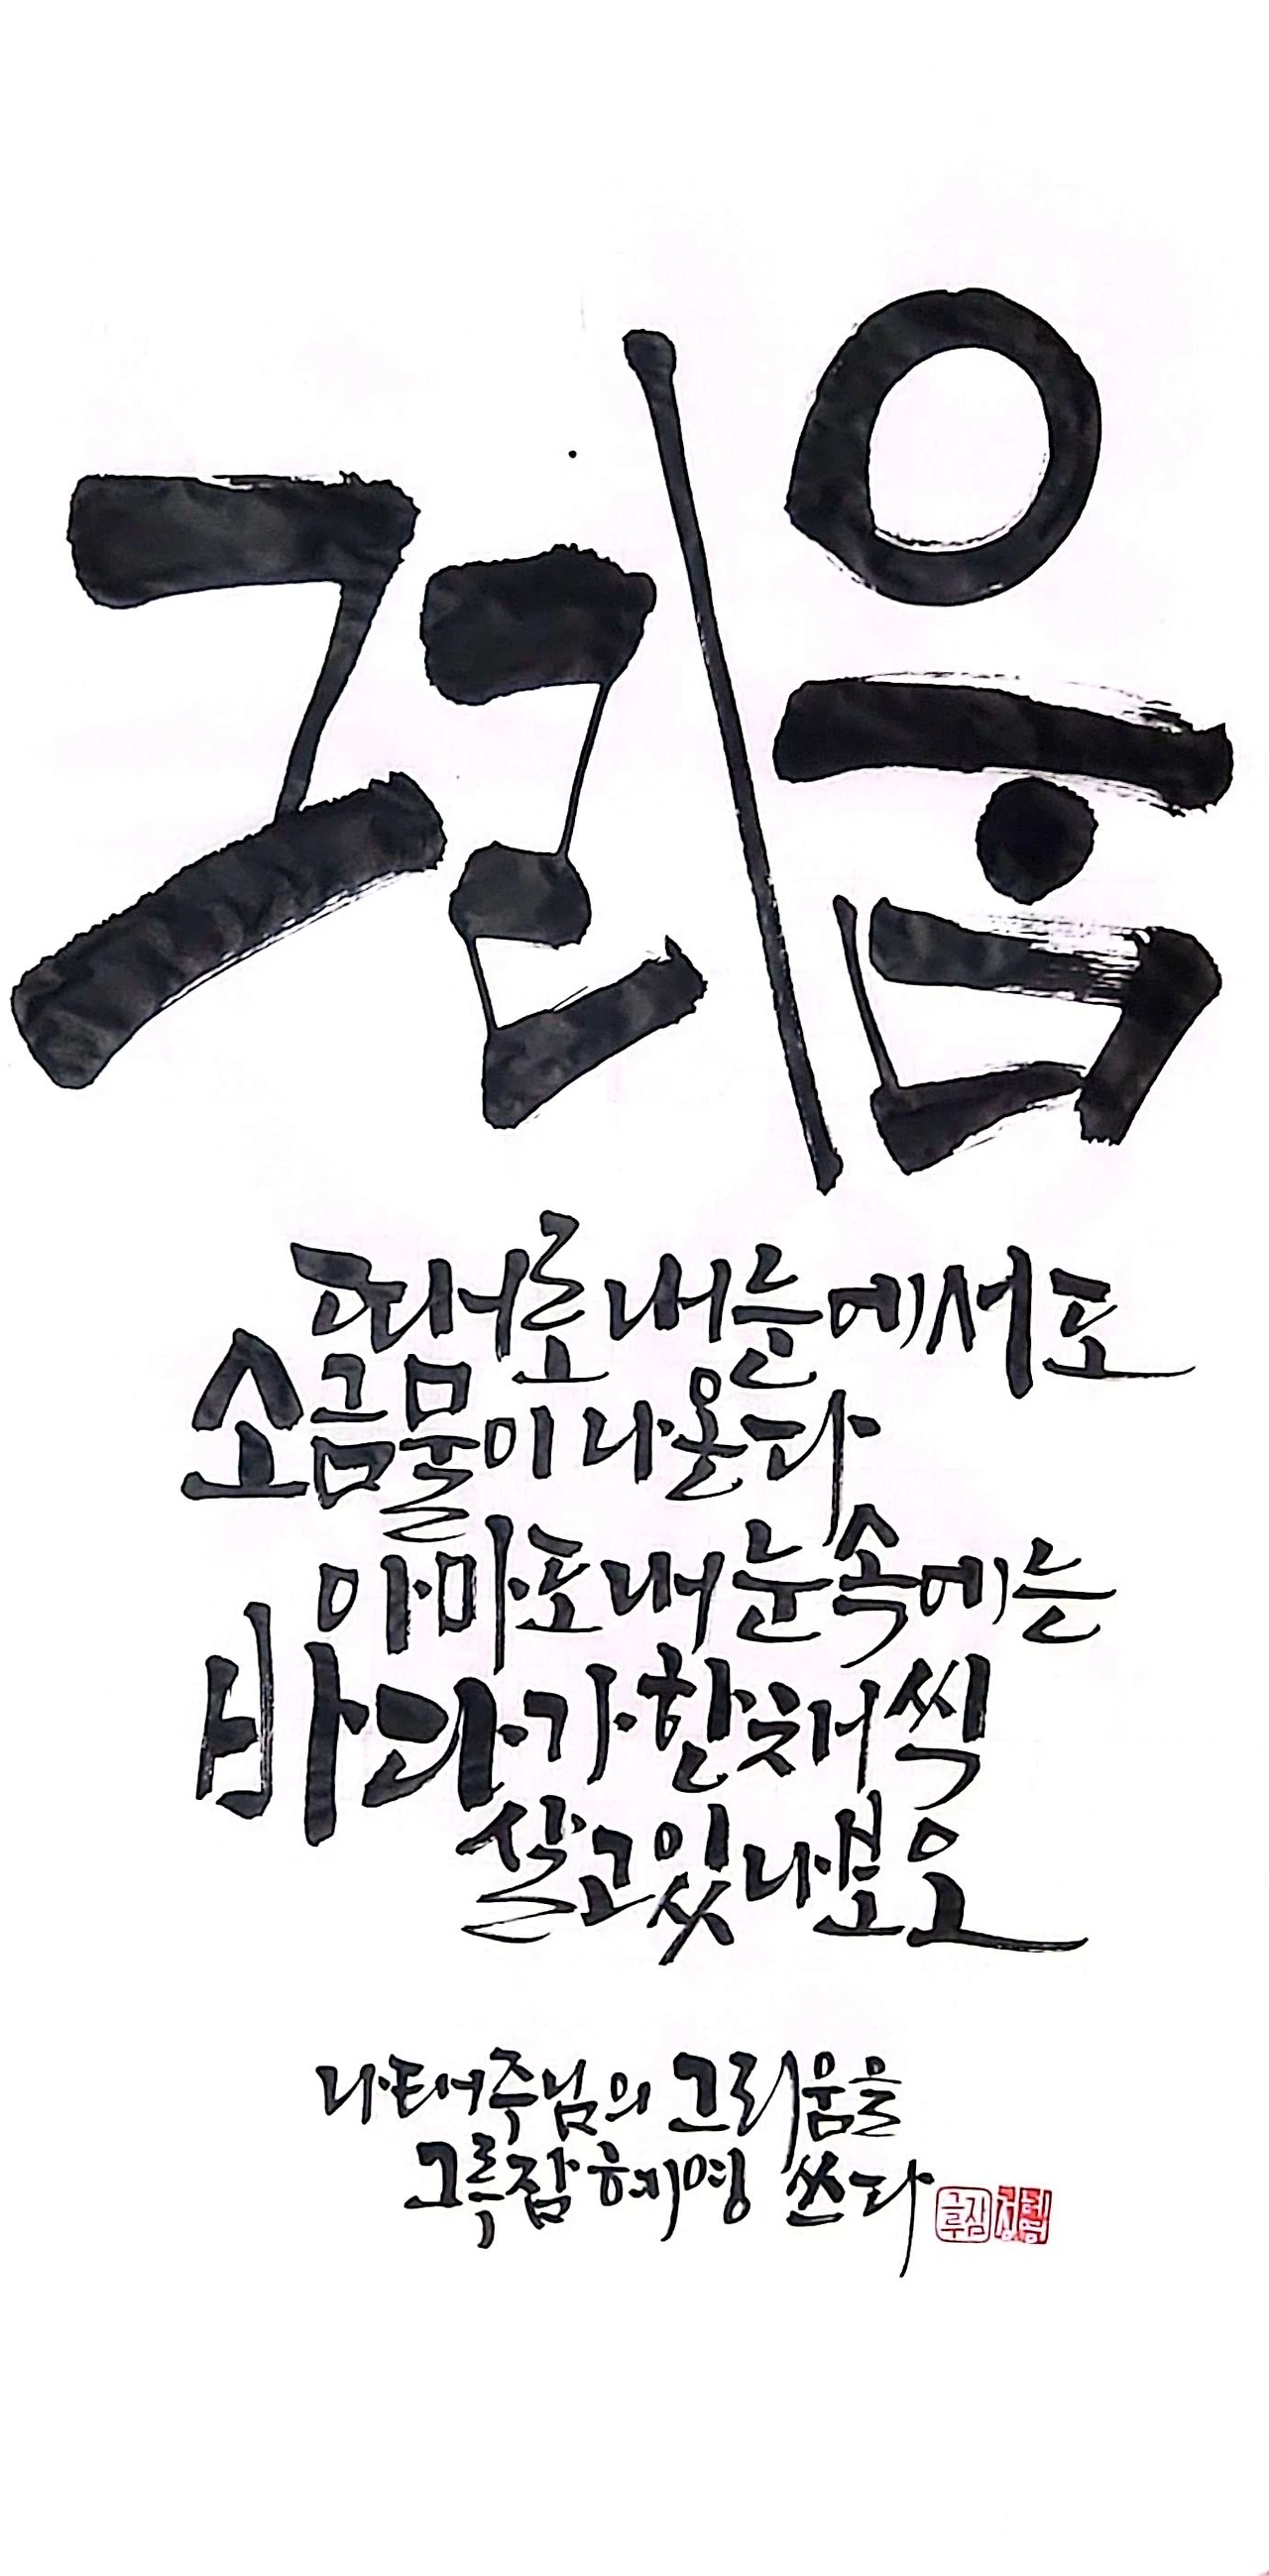 그리움
때로 내 눈에서도
소금물이 나온다
아마도 내 눈 속에는
바다가 한 채씩
살고 있나 보오
나태주님의 그리움을
그루잠 혜영 쓰다
그루잠 정혜영